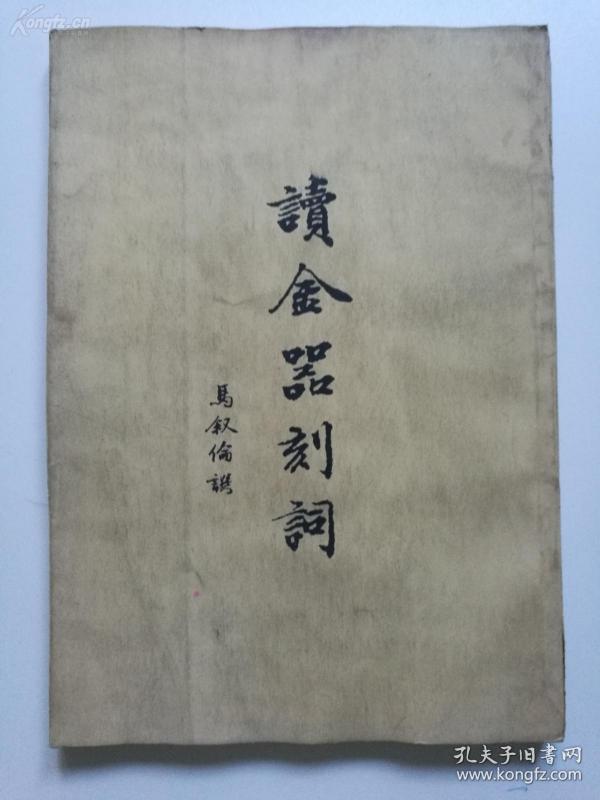 Kongfz.cn
讀金器刻詞
馬叙倫譔
孔夫子旧書网
www.kongfz.com